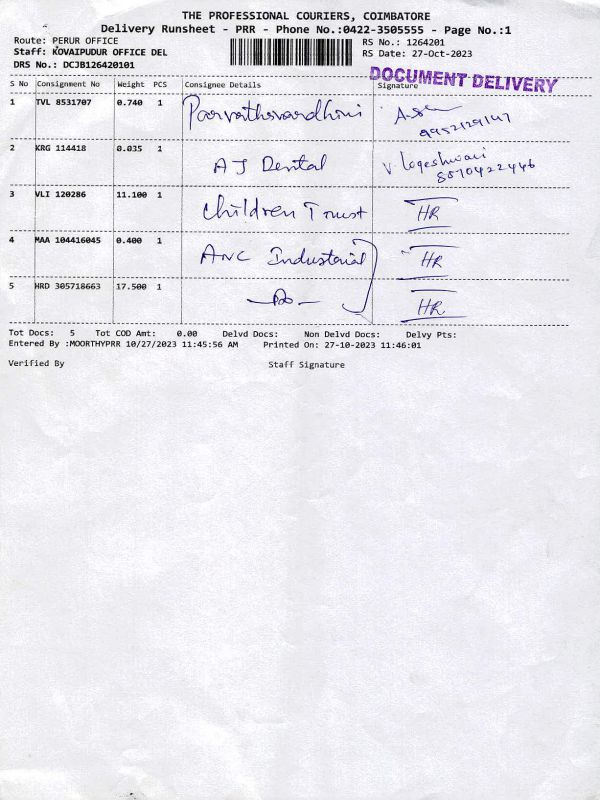 THE PROFESSIONAL COURIERS, COIMBATORE
Delivery Runsheet - PRR - Phone No.:0422-3505555 - Page No.:1
Route: PERUR OFFICE RS No.: 1264201
Staff: KOVAIPUDUR OFFICE DEL RS Date: 27-Oct-2023
DRS No.: DCJB126420101
DOCUMENT DELIVERY
S No Consignment No Weight PCS Consignee Details Signature
1 TVL 8531707 0.740 1 Parvathavardhini
2 KRG 114418 0.035 1 AJ Dental V. Logeshwari
8870422446
3 VLI 120286 11.100 1 Children Trust HR
4 MAA 104416045 0.400 1 ANC Industorial HR
5 HRD 305718663 17.500 1 HR
Tot Docs: 5 Tot COD Amt: 0.00 Delvd Docs: Non Delvd Docs: Delvy Pts:
Entered By :MOORTHYPRR 10/27/2023 11:45:56 AM Printed On: 27-10-2023 11:46:01
Verified By Staff Signature